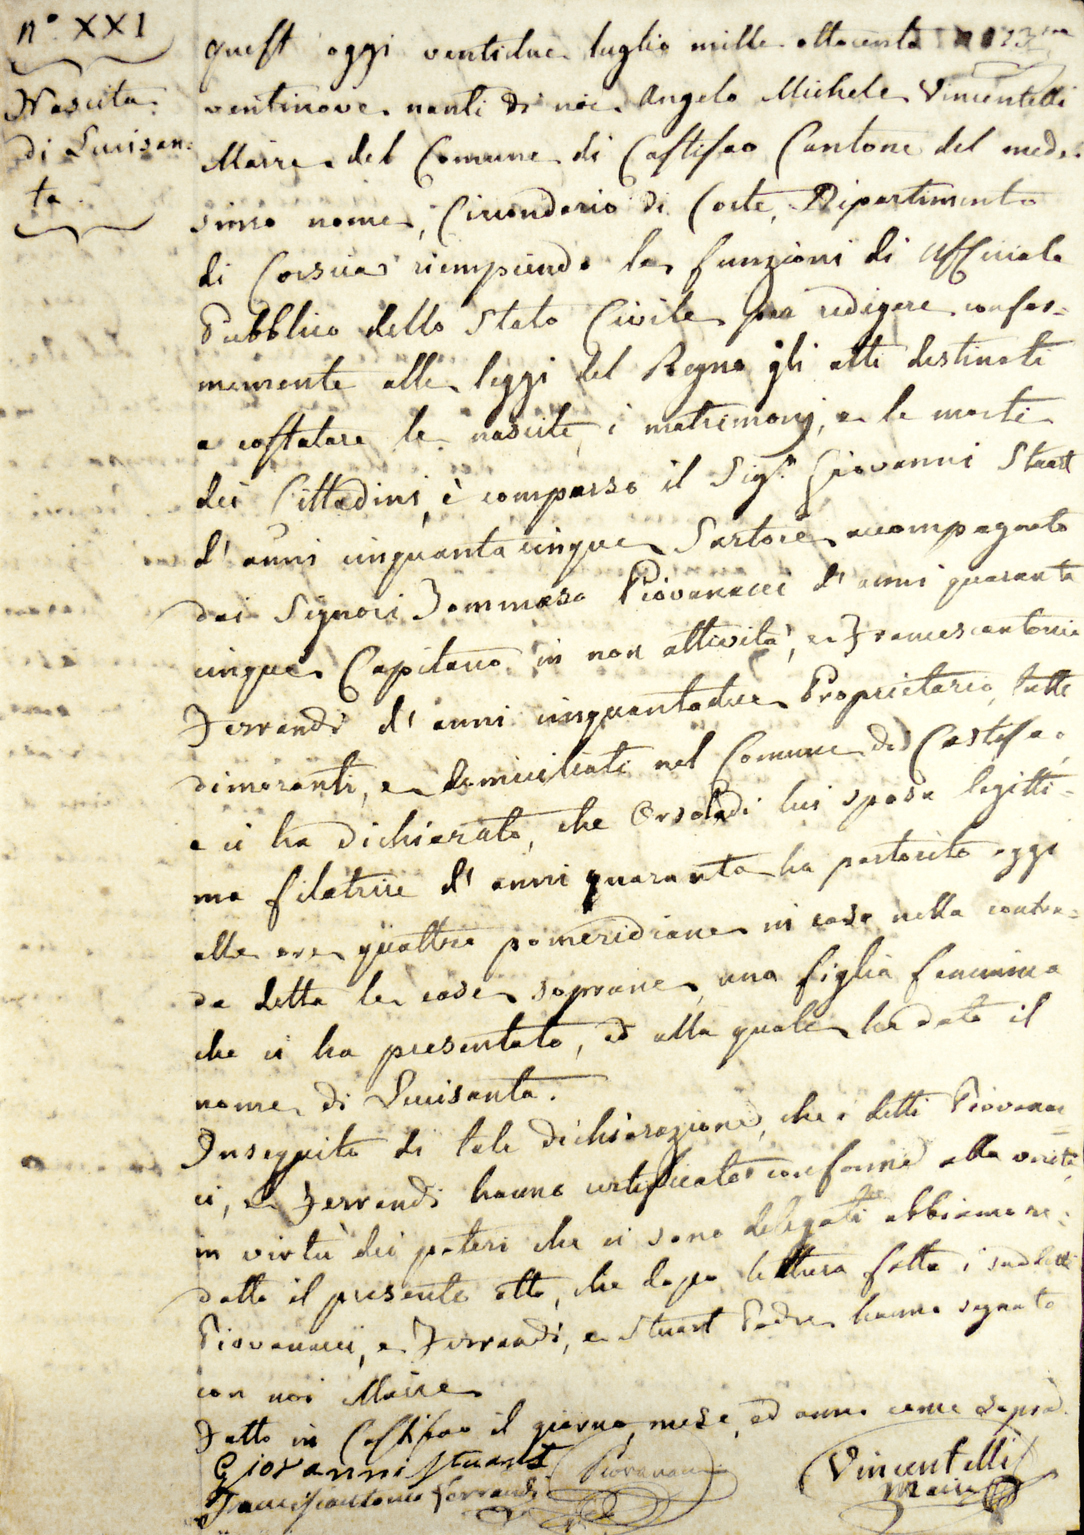 N.º XXI
Nascita
di Lucisan=
ta
Quest' oggi ventidue luglio mille ottocento
ventinove nanti di noi Angelo Michele Vincentelli
Maire del Comune di Castifao Cantone del mede=
simo nome, Circondario di Corte, Dipartimento
di Corsica riempiendo le funzioni di Uffiziale
Pubblico dello Stato Civile per redigere confor=
memente alle leggi del Regno gli atti destinati
a costatare le nascite, i matrimonj, e le morti
dei Cittadini, è comparso il Sig.r Giovanni Stuart
d'anni cinquantacinque Sartore accompagnato
dai Signori Tommaso Piovanacci d'anni quaranta
cinque Capitano in non attività, e Francescantonio
Ferrandi d'anni cinquantadue Proprietario, tutti
dimoranti, e domiciliati nel Comune di Castifao,
e ci ha dichiarato, che Orsola di lui sposa legitti=
ma filatrice d'anni quaranta ha partorito oggi
alle ore quattro pomeridiane in casa nella contra=
da detta le case soprane, una figlia femmina
che ci ha presentato, ed alla quale ha dato il
nome di Lucisanta.
Inseguito di tale dichiarazione, che i detti Piovanac=
ci, e Ferrandi hanno certificato conforme alla verità,
in virtù dei poteri che ci sono delegati abbiamo re=
datto il presente atto, che dopo lettura fatta i suddetti
Piovanacci, e Ferrandi, e Stuart Padre hanno segnato
con noi Maire
Fatto in Castifao il giorno, mese, ed anno come sopra.
Giovanni Stuart Piovanacci Vincentelli
Francescantonio Ferrandi Maire